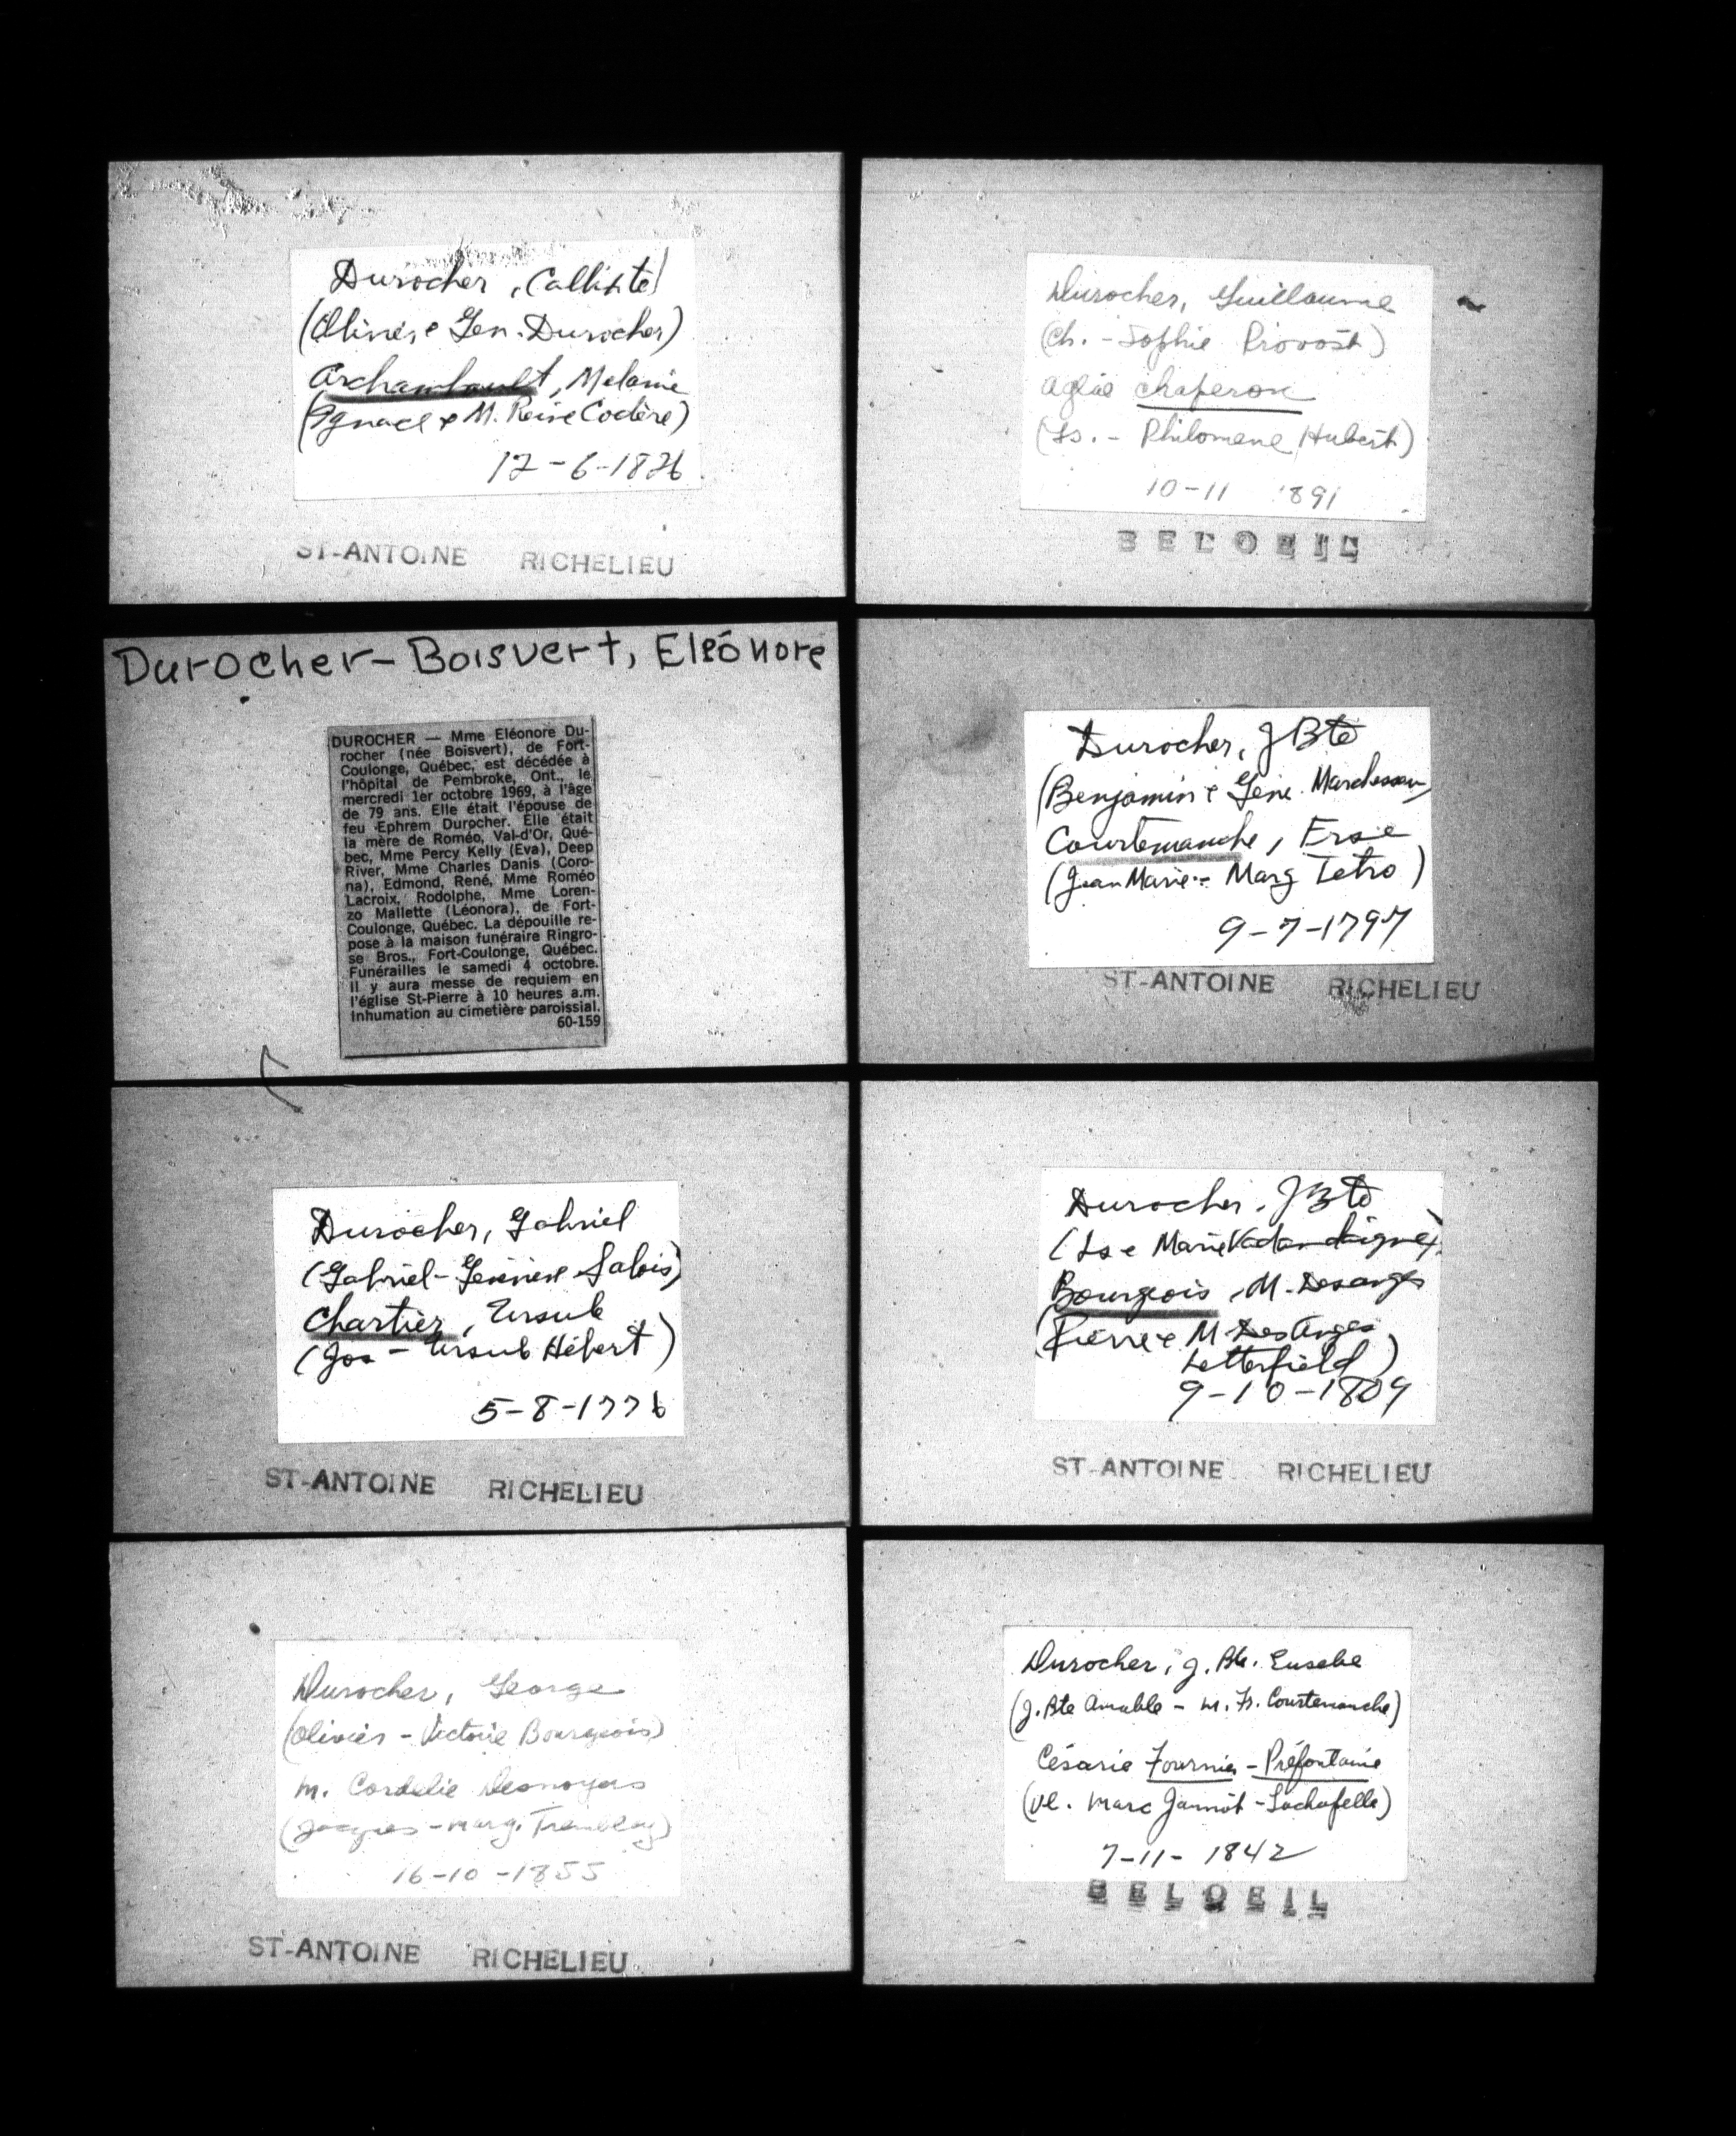 Durocher, Calliste
(Olivier e Gen. Durocher)
Archambault, Melanie
(Ignace e M. Reine Codère)
12-6-1826
ST-ANTOINE RICHELIEU
Durocher, Guillaume
(Ch. - Sophie Provost)
Aglaé Chaperon
(Ls. - Philomene Hubert)
10-11 1891
BELOEIL
Durocher-Boisvert, Eléonore
DUROCHER — Mme Eléonore Du-
rocher (née Boisvert), de Fort-
Coulonge, Québec, est décédée à
l'hôpital de Pembroke, Ont., le
mercredi 1er octobre 1969, à l'âge
de 79 ans. Elle était l'épouse de
feu Ephrem Durocher. Elle était
la mère de Roméo, Val-d'Or, Qué-
bec, Mme Percy Kelly (Eva), Deep
River, Mme Charles Danis (Coro-
na), Edmond, René, Mme Roméo
Lacroix, Rodolphe, Mme Loren-
zo Mallette (Léonora), de Fort-
Coulonge, Québec. La dépouille re-
pose à la maison funéraire Ringro-
se Bros., Fort-Coulonge, Québec.
Funérailles le samedi 4 octobre.
Il y aura messe de requiem en
l'église St-Pierre à 10 heures a.m.
Inhumation au cimetière paroissial.
60-159
Durocher, J Bte
(Benjamin e Gene. Marchesseau)
Courtemanche, Ersie
(Jean Marie - Marg Tetro)
9-7-1797
ST-ANTOINE RICHELIEU
Durocher, Gabriel
(Gabriel - Genevieve Salois)
Chartier, Ursule
(Jos - Ursule Hébert)
5-8-1776
ST-ANTOINE RICHELIEU
Durocher, J Bte
(Ls e Marie Vadandaigne)
Bourgeois, M. Desanges
(Pierre e M Des Anges
Letterfield)
9-10-1809
ST-ANTOINE RICHELIEU
Durocher, George
(Olivier - Victoire Bourgeois)
M. Cordelie Desnoyers
(Jacques - Marg. Tremblay)
16-10-1855
ST-ANTOINE RICHELIEU
Durocher, J. Bte. Eusebe
(J. Bte Amable - M. Fs. Courtemanche)
Césarie Fournier - Préfontaine
(Vl. Marc Jannot - Lachapelle)
7-11-1842
BELOEIL